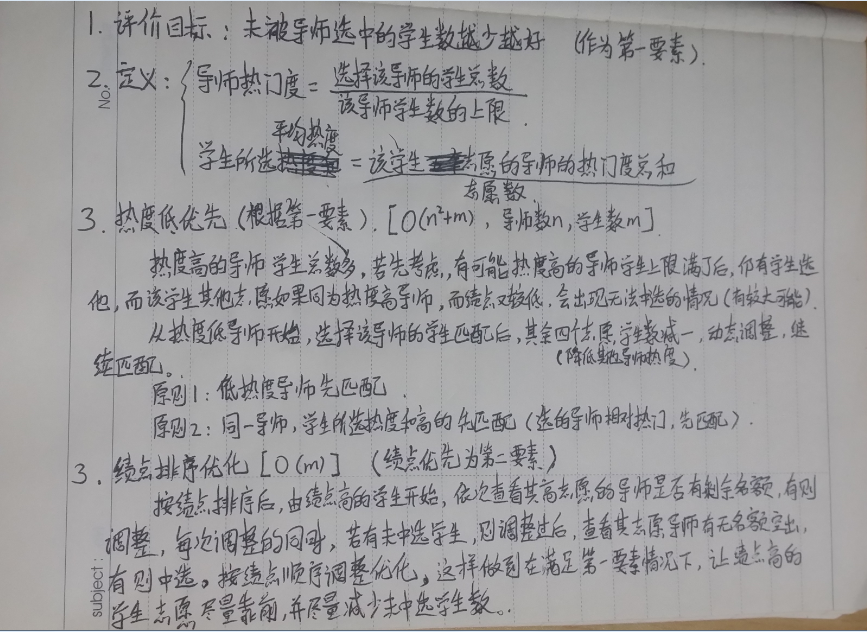 1. 评价目标：未被导师选中的学生数越少越好 （作为第一要素）.
2. 定义：导师热门度 = 选择该导师的学生总数
该导师学生数的上限.
平均热度
学生所选 = 该学生志愿的导师的热门度总和
志愿数
No.
3. 热度低优先（根据第一要素）. [O(n²+m)，导师数n，学生数m].
热度高的导师学生总数多，若先考虑，有可能热度高的导师学生上限满了后，仍有学生选
他，而该学生其他志愿如果同为热度高导师，而绩点又较低，会出现无法中选的情况（有较大可能）.
从热度低导师开始，选择该导师的学生匹配后，其余四个志愿学生数减一，动态调整，继
续匹配。
（降低其他导师热度）.
原则1：低热度导师先匹配.
原则2：同一导师，学生所选热度和高的先匹配（选的导师相对热门，先匹配）.
3. 绩点排序优化 [O(m)] （绩点优先为第二要素）
按绩点排序后，由绩点高的学生开始，依次查看其高志愿的导师是否有剩余名额，有则
调整，每次调整的同时，若有未中选学生，则调整过后，查看其志愿导师有无名额空出，
有则中选。按绩点顺序调整优化。这样做到在满足第一要素情况下，让绩点高的
学生志愿尽量靠前，并尽量减少未中选学生数。
subject: